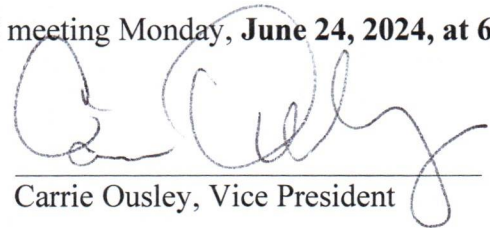 meeting Monday, June 24, 2024, at 6
Carrie Ousley, Vice President